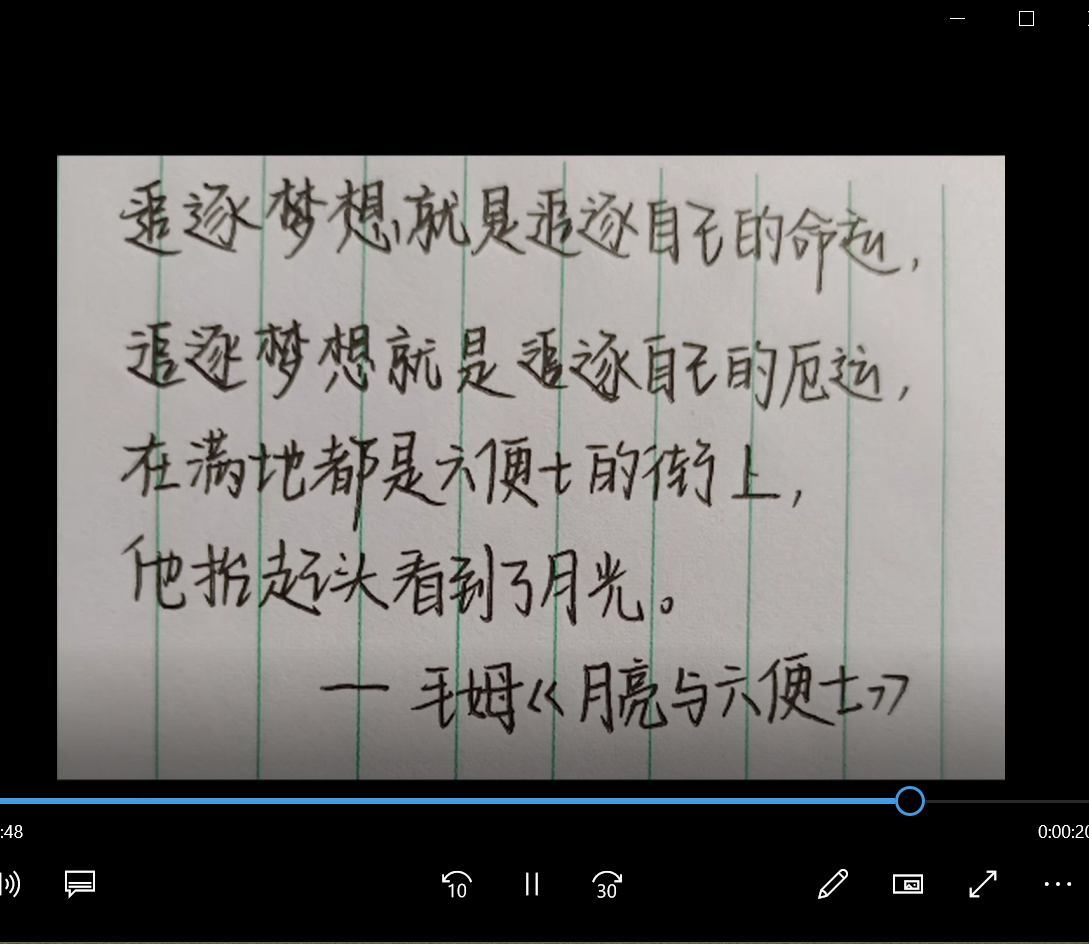 追逐梦想,就是追逐自己的命运,
追逐梦想就是追逐自己的厄运,
在满地都是六便士的街上,
他抬起头看到了月光。
— 毛姆《月亮与六便士》
:48
0:00:20
10
30